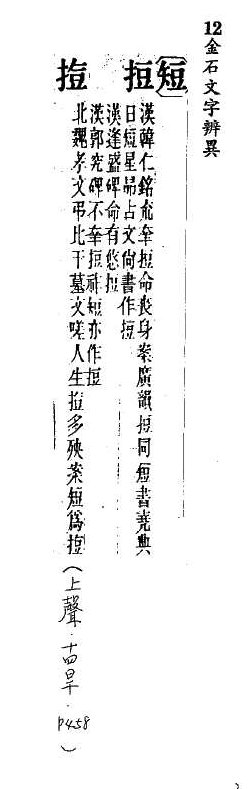 12金石文字辨異
短 𢭃
漢韓仁銘幸𢭃命喪身案廣韻𢭃同短書堯典
日短星昴古文尚書作𢭃
漢逢盛碑命有悠𢭃
漢郭究碑不幸𢭃祚短亦作𢭃
北魏孝文弔比干墓文嗟人生多殃案短爲
(上聲.十四旱.P458)